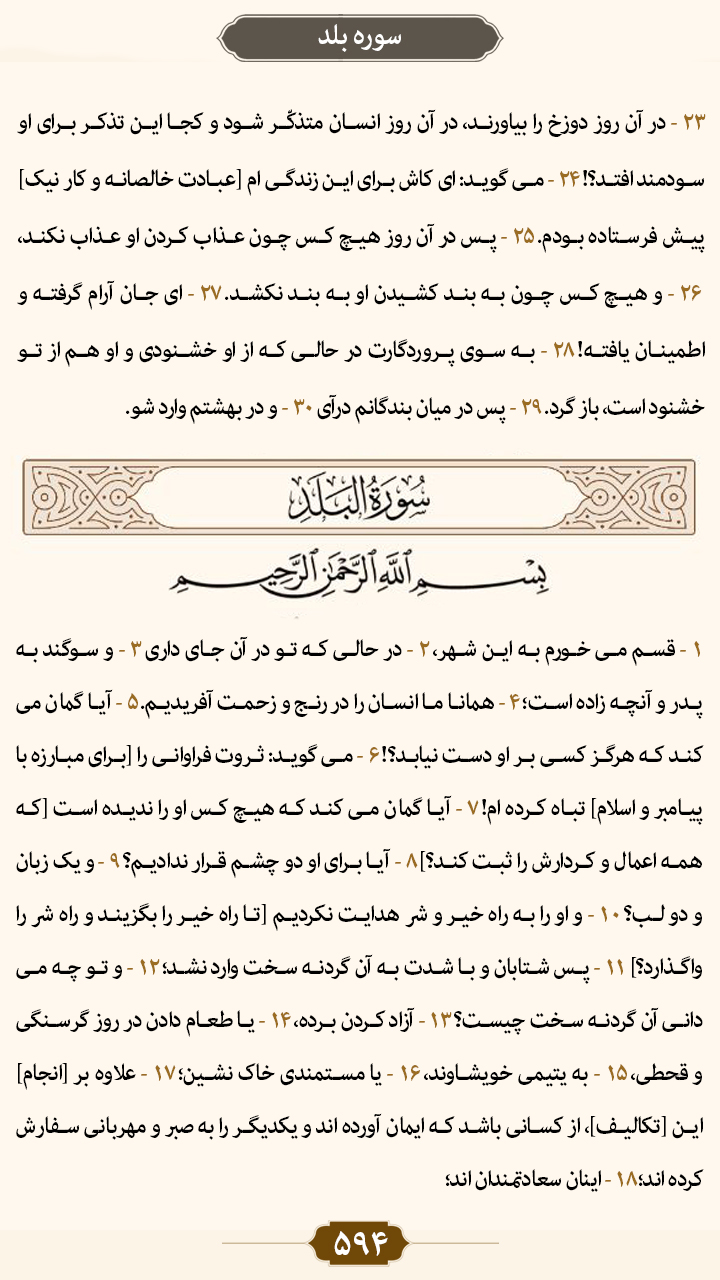 سوره بلد
۲۳ - در آن روز دوزخ را بیاورنـد، در آن روز انسـان متذکّـر شـود و کجـا ایـن تذکـر بـرای او
سـودمند افتـد؟! ۲۴ - مـی گویـد: ای کاش بـرای ایـن زندگـی ام [عبـادت خالصانـه و کار نیک]
پیـش فرسـتاده بـودم. ۲۵ - پـس در آن روز هیـچ کـس چـون عـذاب کـردن او عـذاب نکنـد،
۲۶ - و هیـچ کـس چـون بـه بنـد کشـیدن او بـه بنـد نکشـد. ۲۷ - ای جـان آرام گرفتـه و
اطمینـان یافتـه! ۲۸ - بـه سـوی پـروردگارت در حالـی کـه از او خشـنودی و او هـم از تـو
خشنود است، باز گرد. ۲۹ - پس در میان بندگانم درآی ۳۰ - و در بهشتم وارد شو.
سُورَةُ البَلَدِ
بِسْمِ ٱللَّهِ ٱلرَّحْمَٰنِ ٱلرَّحِيمِ
۱ - قسـم مـی خـورم بـه ایـن شـهر، ۲ - در حالـی کـه تـو در آن جـای داری ۳ - و سـوگند بـه
پـدر و آنچـه زاده اسـت؛ ۴ - همانـا مـا انسـان را در رنـج و زحمـت آفریدیـم. ۵ - آیـا گمان می
کنـد کـه هرگـز کسـی بـر او دسـت نیابـد؟! ۶ - مـی گویـد: ثـروت فراوانـی را [بـرای مبـارزه با
پیـامبر و اسلام] تبـاه کـرده ام! ۷ - آیـا گمان مـی کنـد کـه هیـچ کـس او را ندیـده اسـت [کـه
همـه اعمال و کـردارش را ثبـت کنـد؟] ۸ - آیـا بـرای او دو چشـم قـرار ندادیـم؟ ۹ - و یک زبان
و دو لـب؟ ۱۰ - و او را بـه راه خیـر و شر هدایـت نکردیـم [تـا راه خیـر را بگزینـد و راه شر را
واگـذارد؟] ۱۱ - پـس شـتابان و بـا شـدت بـه آن گردنـه سـخت وارد نشـد؛ ۱۲ - و تـو چـه مـی
دانـی آن گردنـه سـخت چیسـت؟ ۱۳ - آزاد کـردن بـرده، ۱۴ - یـا طعـام دادن در روز گرسـنگی
و قحطی، ۱۵ - به یتیمی خویشـاوند، ۱۶ - یا مسـتمندی خاک نشـین؛ ۱۷ - علاوه بر [انجام]
ایـن [تکالیـف]، از کسـانی باشـد کـه ایمان آورده اند و یکدیگـر را به صبر و مهربانی سـفارش
کرده اند؛ ۱۸ - اینان سعادتمندان اند؛
۵۹۴